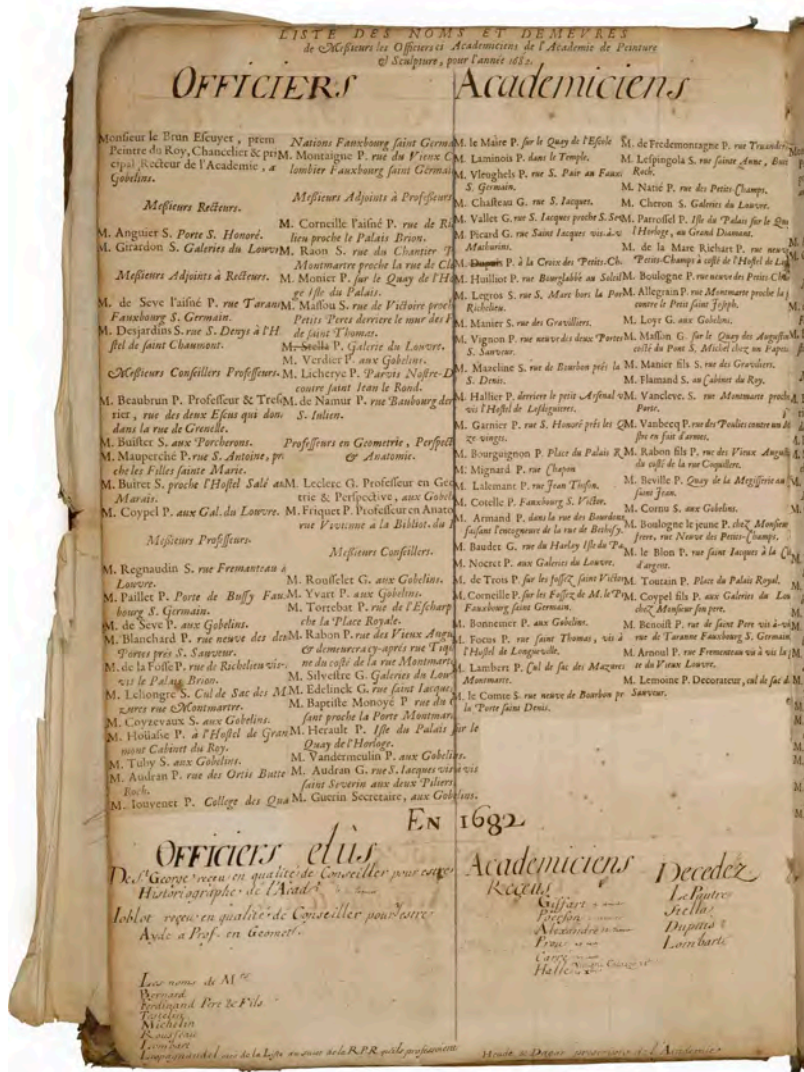 LISTE DES NOMS ET DEMEVRES
de Messieurs les Officiers et Academiciens de l'Academie de Peinture
& Sculpture, pour l'année 1682.
OFFICIERS
Monsieur le Brun Escuyer, prem
Peintre du Roy, Chancelier & pri
cipal Recteur de l'Academie, a
Gobelins.
Messieurs Recteurs.
M. Anguier S. Porte S. Honoré.
M. Girardon S. Galeries du Louvre
Messieurs Adjoints à Recteurs.
M. de Seve l'aisné P. rue Taran
Fauxbourg S. Germain.
M. Desjardins S. rue S. Denys à l'H
stel de saint Chaumont.
Messieurs Conseillers Professeurs.
M. Beaubrun P. Professeur & Tres
rier, rue des deux Escus qui don
dans la rue de Grenelle.
M. Buister S. aux Porcherons.
M. Mauperché P. rue S. Antoine, pr
che les Filles sainte Marie.
M. Buiret S. proche l'Hostel Salé au
Marais.
M. Coypel P. aux Gal. du Louvre.
Messieurs Professeurs.
M. Regnaudin S. rue Fremanteau
Louvre.
M. Paillet P. Porte de Bussy Faux
bourg S. Germain.
M. de Seve P. aux Gobelins.
M. Blanchard P. rue neuve des deu
Portes prés S. Sauveur.
M. de la Fosse P. rue de Richelieu vis-
vis le Palais Brion.
M. Lehongre S. Cul de Sac des M
zures rue Montmartre.
M. Coyzevaux S. aux Gobelins.
M. Hoüasse P. à l'Hostel de Gram
mont Cabinet du Roy.
M. Tuby S. aux Gobelins.
M. Audran P. rue des Ortis Butte
Roch.
M. Iouvenet P. College des Qua
Nations Fauxbourg saint Germa
M. Montaigne P. rue du Vieux C
lombier Fauxbourg saint Germai
Messieurs Adjoints à Professeurs
M. Corneille l'aisné P. rue de Ri
lieu proche le Palais Brion.
M. Raon S. rue du Chantier
Montmartre proche la rue de Cl
M. Monier P. sur le Quay de l'H
ge Isle du Palais.
M. Massou S. rue de Victoire proch
Petits Peres derriere le mur des F
de saint Thomas.
M. Stella P. Galerie du Louvre.
M. Verdier P. aux Gobelins.
M. Licherye P. Parvis Nostre-D
contre saint Jean le Rond.
M. de Namur P. rue Baubourg der
S. Iulien.
Professeurs en Geometrie, Perspect
& Anatomie.
M. Leclerc G. Professeur en Geo
trie & Perspective, aux Gobel
M. Friquet P. Professeur en Anato
rue Vivienne à la Bibliot. du
Messieurs Conseillers.
M. Rousselet G. aux Gobelins.
M. Yvart P. aux Gobelins.
M. Torrebat P. rue de l'Escharp
che la Place Royale.
M. Rabon P. rue des Vieux Augu
& demeurera cy-après rue Tiqu
ne du costé de la rue Montmart
M. Silvestre G. Galeries du Lou
M. Edelinck G. rue saint Iacque
M. Baptiste Monoyé P. rue du
sant proche la Porte Montmar
M. Herault P. Isle du Palais sur le
Quay de l'Horloge.
M. Vandermeulin P. aux Gobelins.
M. Audran G. rue S. Iacques vis à vis
saint Severin aux deux Piliers
M. Guerin Secretaire, aux Gobelins.
Academiciens
M. le Maire P. sur le Quay de l'Escole
M. Laminois P. dans le Temple.
M. Vleughels P. rue S. Pair au Faux
S. Germain.
M. Chasteau G. rue S. Iacques.
M. Vallet G. rue S. Iacques proche S. Sev
M. Picard G. rue Saint Iacques vis-à-v
Mathurins.
M. Dupuis P. à la Croix des Petits-Ch.
M. Huilliot P. rue Bourglabbé au Soleil
M. Legros S. rue S. Marc hors la Por
Richelieu.
M. Manier S. rue des Gravilliers.
M. Vignon P. rue neuve des deux Portes
S. Sauveur.
M. Mazeline S. rue de Bourbon prés la
S. Denis.
M. Hallier P. derriere le petit Arsenal v
vis l'Hostel de Lesdeguieres.
M. Garnier P. rue S. Honoré prés les Q
ze vingts.
M. Bourguignon P. Place du Palais R
M. Mignard P. rue Chapon
M. Lalemant P. rue Jean Tison.
M. Cotelle P. Fauxbourg S. Victor.
M. Armand P. dans la rue des Bourdons
faisant l'encogneure de la rue de Bethisy.
M. Baudet G. rue du Harlay Isle du Pa
M. Nocret P. aux Galeries du Louvre.
M. de Trois P. sur les fossez saint Victor
M. Corneille P. sur les Fossez de M. le Pr
Fauxbourg saint Germain.
M. Bonnemer P. aux Gobelins.
M. Focus P. rue saint Thomas, vis à
l'Hostel de Longueville.
M. Lambert P. Cul de sac des Mazures
Montmartre.
M. le Comte S. rue neuve de Bourbon pr
la Porte saint Denis.
M. de Fredemontagne P. rue Truander
M. Lespingola S. rue sainte Anne, But
Rock.
M. Natié P. rue des Petits-Champs.
M. Cheron S. Galeries du Louvre.
M. Parrossel P. Isle du Palais sur le Qu
l'Horloge, au Grand Diamant.
M. de la Mare Richart P. rue neuve
Petits-Champs à costé de l'Hostel de
M. Boulogne P. rue neuve des Petits-Ch
M. Allegrain P. rue Montmartre proche
contre le Petit saint Joseph.
M. Loyr G. aux Gobelins.
M. Masson G. sur le Quay des Augustin
costé du Pont S. Michel chez un
M. Manier fils S. rue des Graviliers.
M. Flamand S. au Cabinet du Roy.
M. Vancleve S. rue Montmartre proche
Porte.
M. Vanbecq P. rue des Poulies contre un
stre en fait d'armes.
M. Rabon fils P. rue des Vieux Augusti
du costé de la rue Coquillere.
M. Beville P. Quay de la Megisserie au
saint Jean.
M. Cornu S. aux Gobelins.
M. Boulogne le jeune P. chez Monsieur
frere, rue Neuve des Petits-Champs.
M. le Blon P. rue saint Iacques à la
d'argent.
M. Toutain P. Place du Palais Royal.
M. Coypel fils P. aux Galeries du Lou
chez Monsieur son pere.
M. Benoist P. rue de saint Pere vis-à-vi
rue de Taranne Fauxbourg S. Germain
M. Arnoul P. rue Frementeau vis à vis la
te du Vieux Louvre.
M. Lemoine P. Decorateur, cul de sac d
Sauveur.
EN 1682
OFFICIERS elûs
De St George reçeu en qualité de Conseiller pour estre
Historiographe de l'Acad
Ioblot reçeu en qualité de Conseiller pour estre
Ayde a Prof. en Geomet
Les noms de Mrs
Bernard
Ferdinand Pere & Fils
Testelin
Michelin
Rousseau
Lombart
de la Liste au sujet de la R.P.R. qu'ils professoient
Academiciens
Reçeus
Giffart
Poerson
Alexandre
Prou
Carré
Hallé
Decedez
Le Pautre
Stella
Dupuis
Lombart